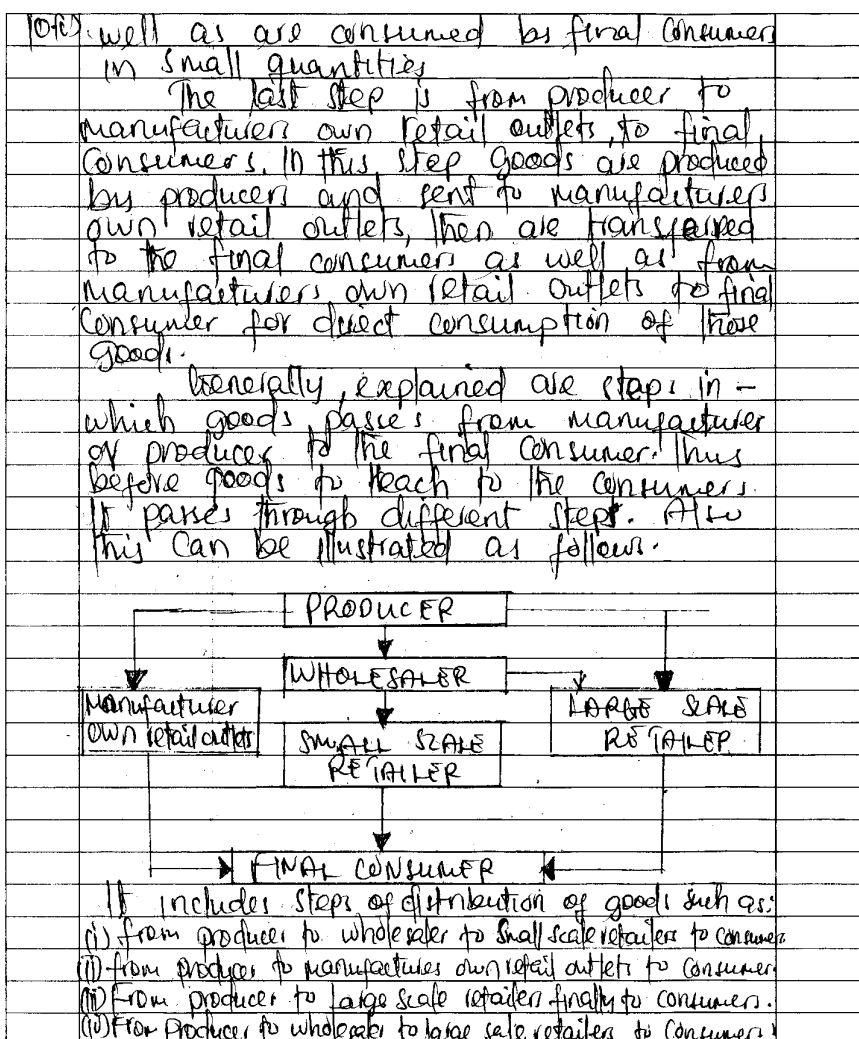 10(c). well as are consumed by final consumers
in small quantities
The last step is from producer to
manufacturers own retail outlets, to final
consumers. In this step goods are produced
by producers and sent to manufacturers
own retail outlets, then are transferred
to the final consumers as well as from
manufacturers own retail outlets to final
consumer for direct consumption of those
goods.
Generally, explained are steps in -
which goods passes from manufacturer
or producer to the final consumer. Thus
before goods to reach to the consumers
It passes through different steps. Also
this can be illustrated as follows.
PRODUCER
WHOLESALER
Manufacturer
own retail outlets
SMALL SCALE
RETAILER
LARGE SCALE
RETAILER
FINAL CONSUMER
It includes steps of distribution of goods such as:
(i) from producer to wholesaler to small scale retailers to consumer
(ii) from producer to manufactures own retail outlets to consumer
(iii) From producer to large scale retailers finally to consumers.
(iv) From Producer to wholesaler to large sale retailers to consumers